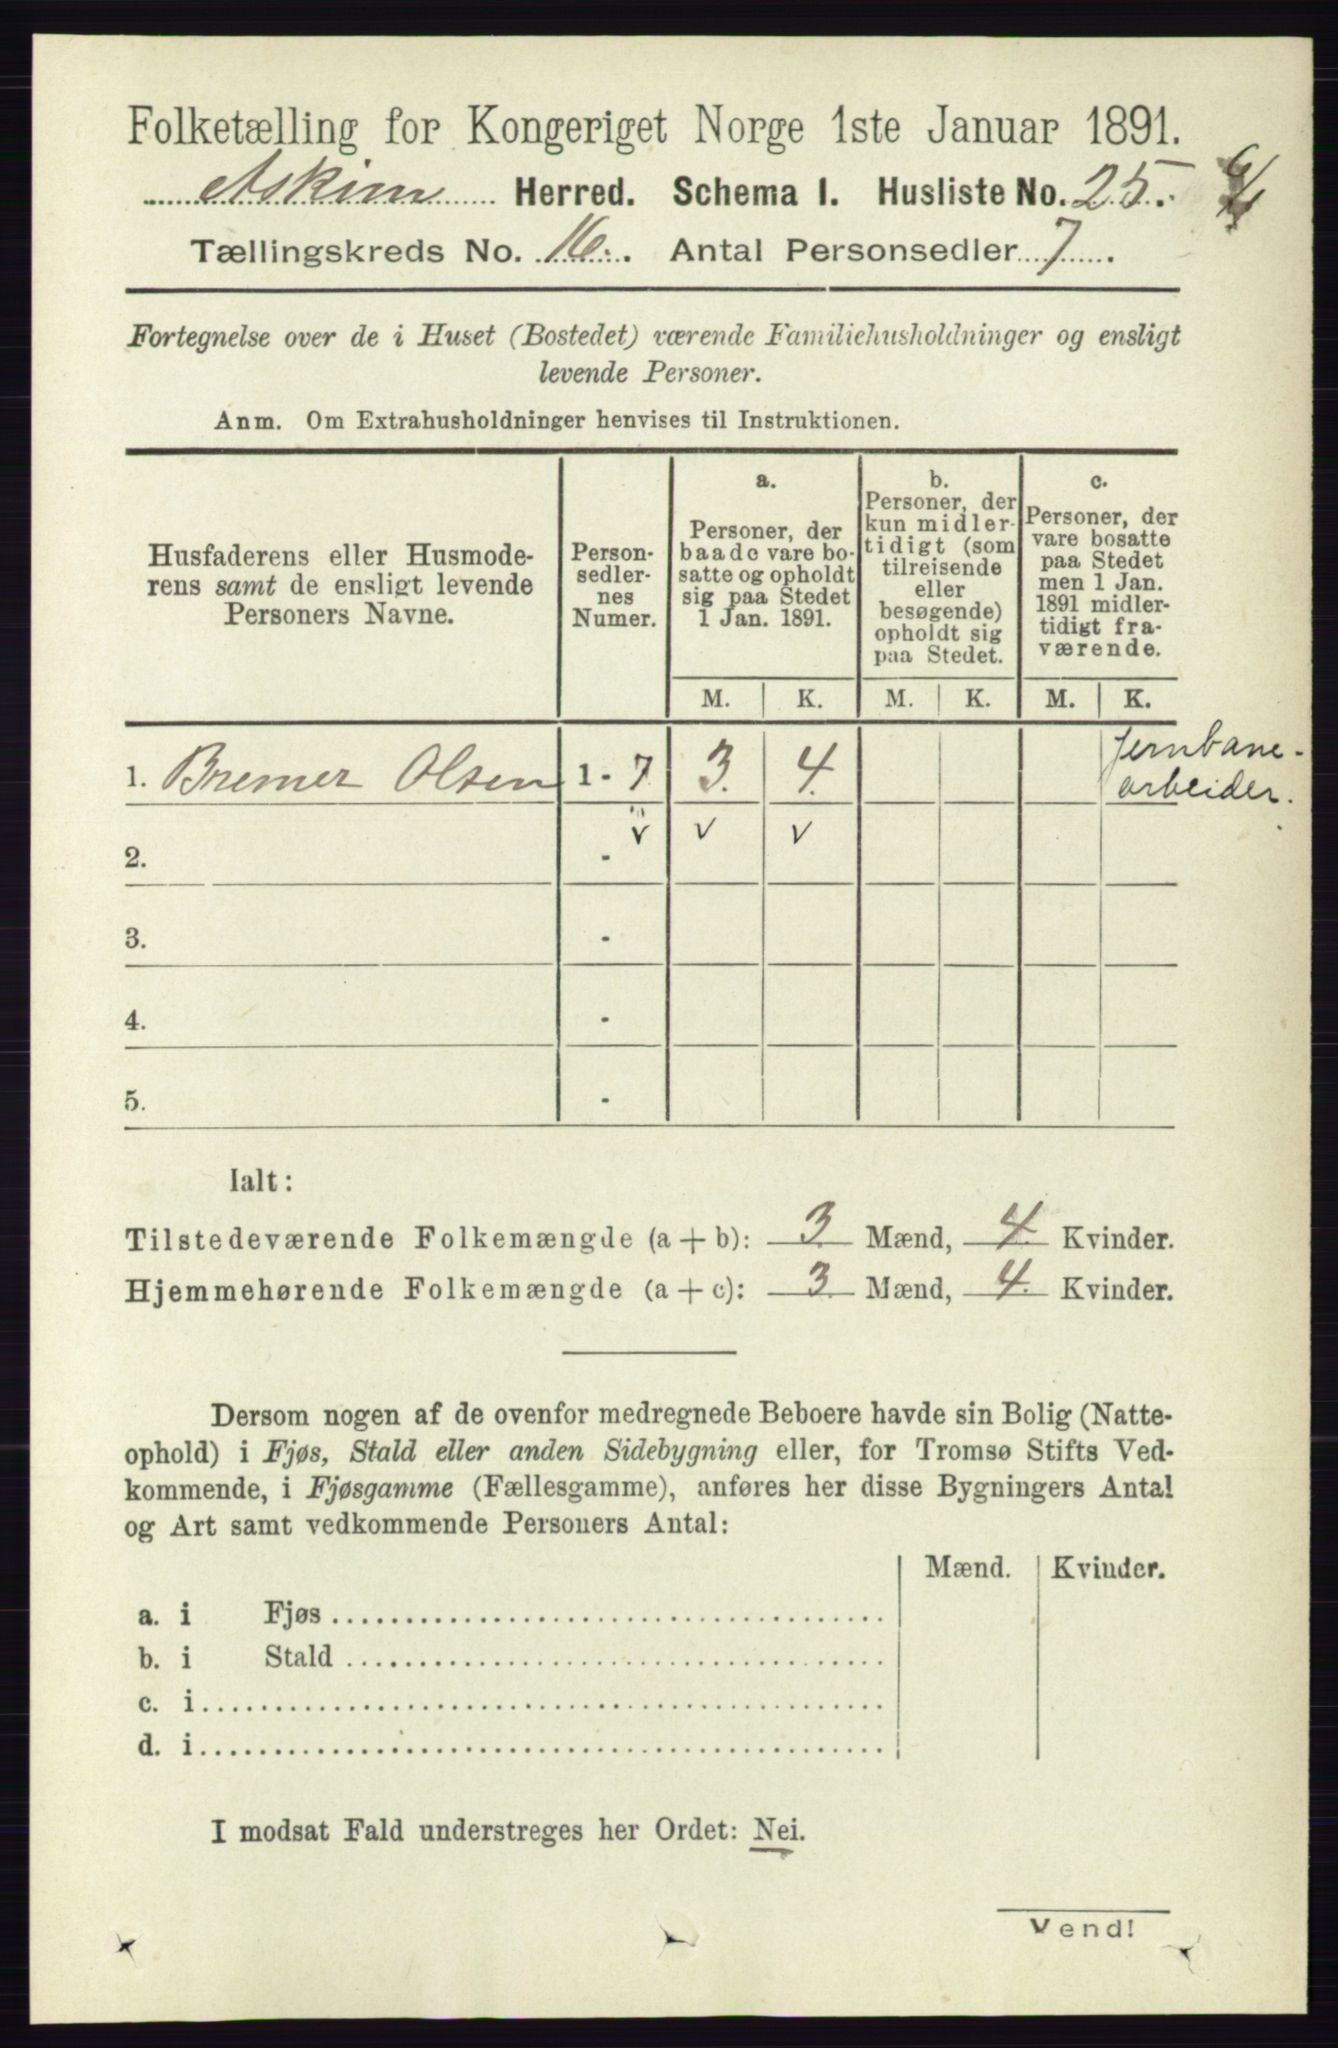 Folketælling for Kongeriget Norge 1ste Januar 1891.
Askim Herred. Schema I. Husliste No. 25.
Tællingskreds No. 16. Antal Personsedler 7.
Fortegnelse over de i Huset (Bostedet) værende Familiehusholdninger og ensligt
levende Personer.
Anm. Om Extrahusholdninger henvises til Instruktionen.
Husfaderens eller Husmode-
rens samt de ensligt levende
Personers Navne.
Person-
sedler-
nes
Numer.
a.
Personer, der
baade vare bo-
satte og opholdt
sig paa Stedet
1 Jan. 1891.
b.
Personer, der
kun midler-
tidigt (som
tilreisende
eller
besøgende)
opholdt sig
paa Stedet.
c.
Personer, der
vare bosatte
paa Stedet
men 1 Jan.
1891 midler-
tidigt fra-
værende.
M. K. M. K. M. K.
1. Bremer Olsen 1 - 7 3. 4. Jernbane-
arbeider.
2. - v v v
3. -
4. -
5. -
Ialt:
Tilstedeværende Folkemængde (a + b): 3. Mænd, 4. Kvinder.
Hjemmehørende Folkemængde (a + c): 3. Mænd, 4. Kvinder.
Dersom nogen af de ovenfor medregnede Beboere havde sin Bolig (Natte-
ophold) i Fjøs, Stald eller anden Sidebygning eller, for Tromsø Stifts Ved-
kommende, i Fjøsgamme (Fællesgamme), anføres her disse Bygningers Antal
og Art samt vedkommende Personers Antal:
Mænd. Kvinder.
a. i Fjøs
b. i Stald
c. i
d. i
I modsat Fald understreges her Ordet: Nei.
Vend!